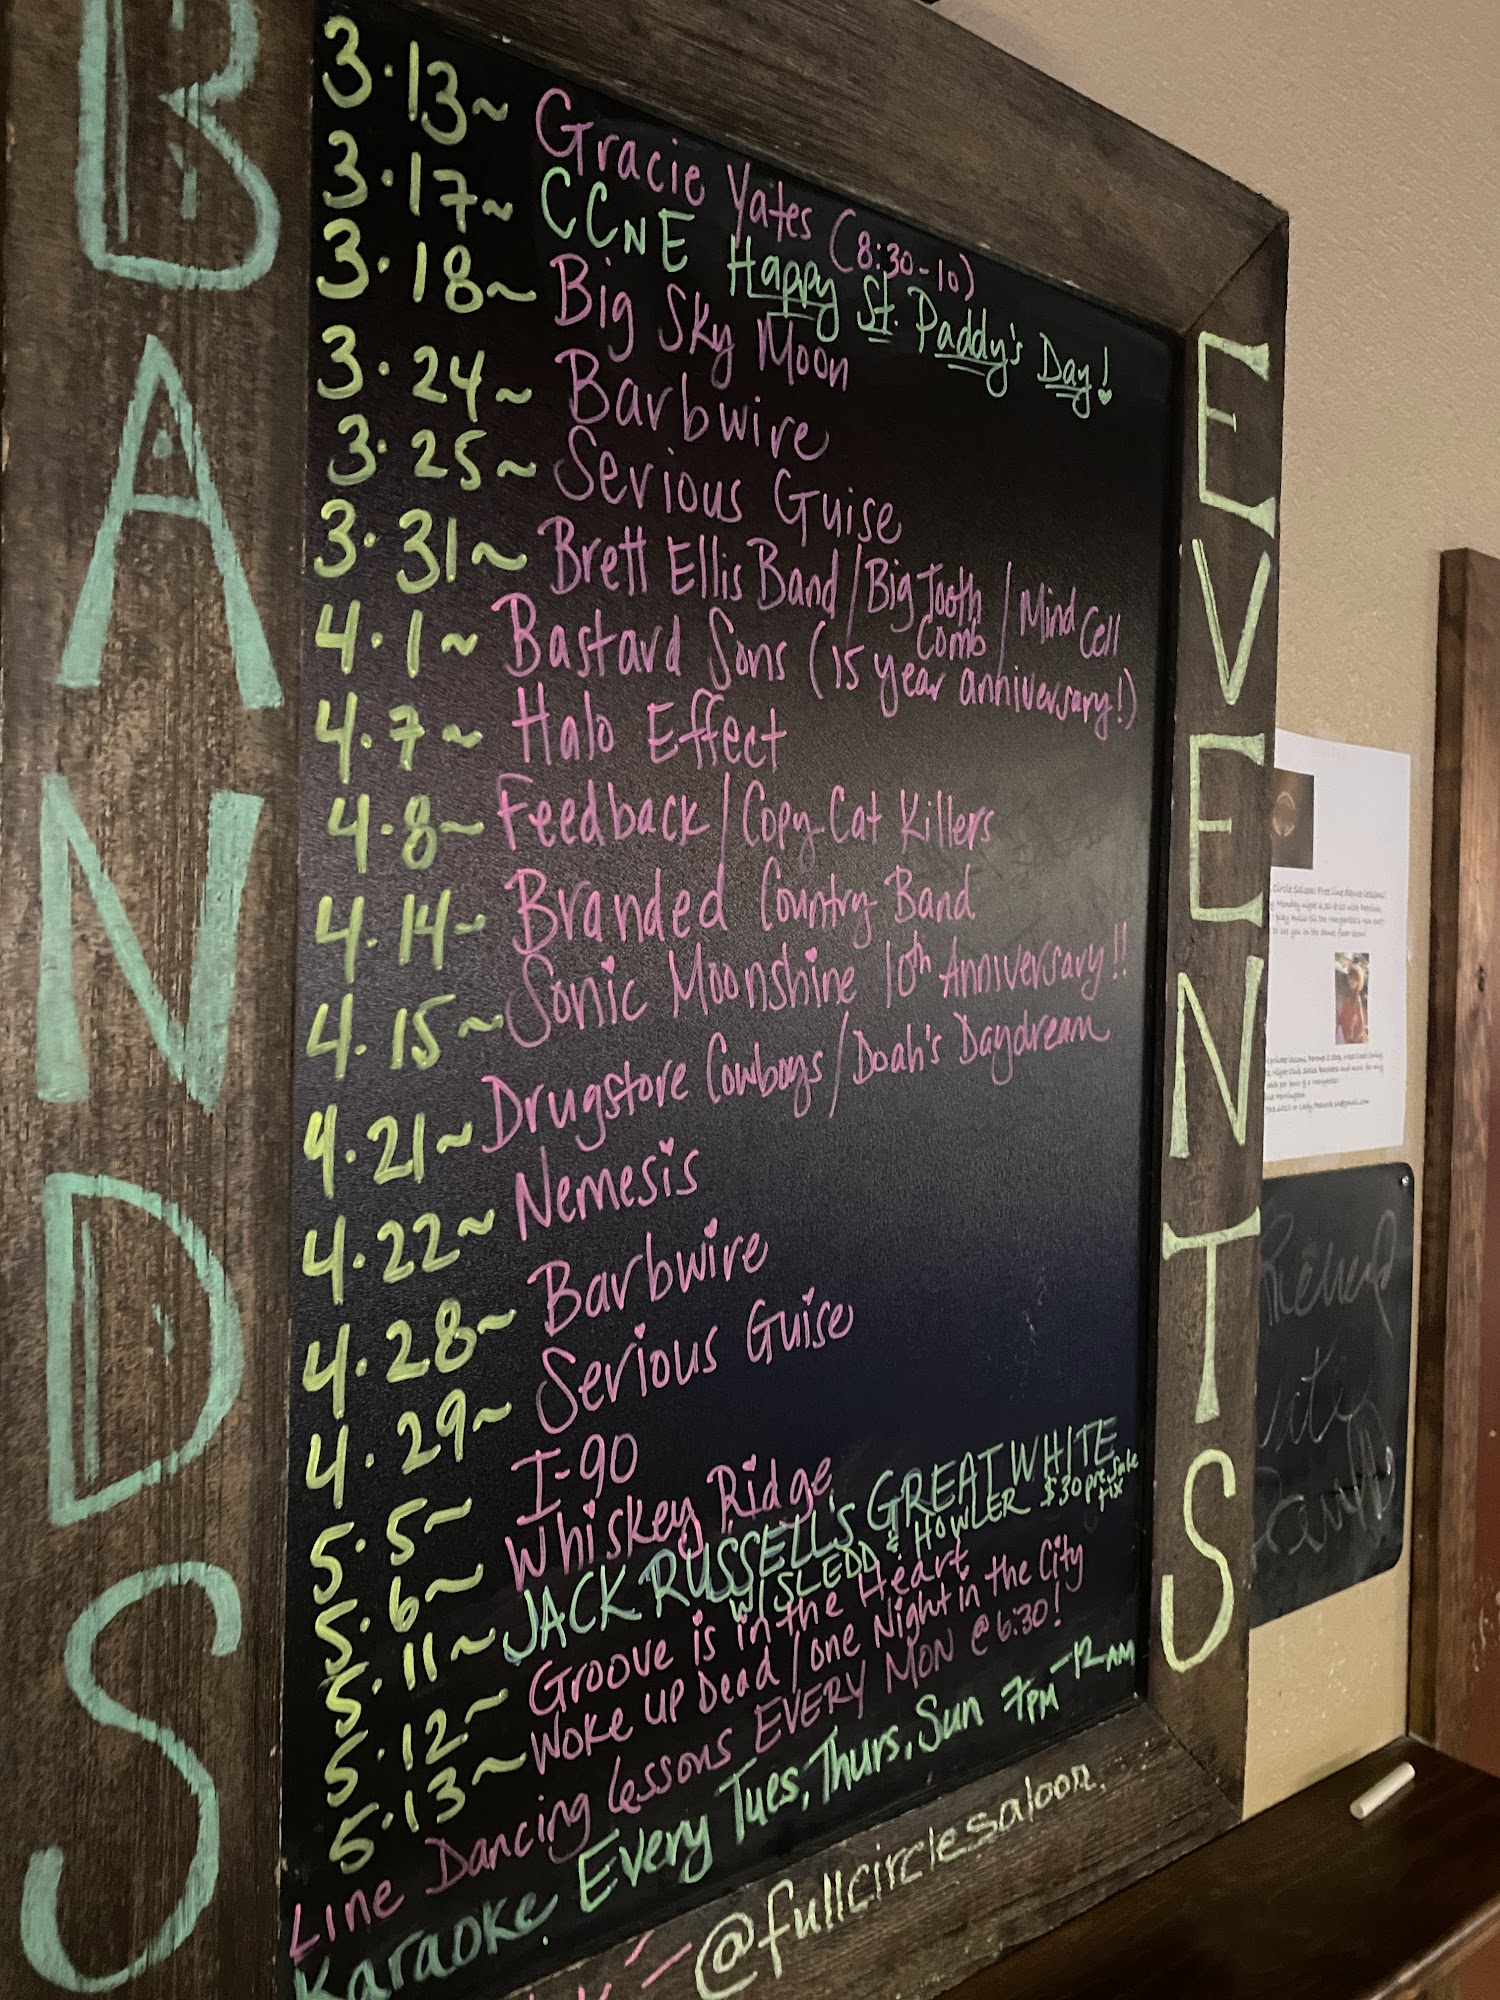 BANDS
3.13~ Gracie Yates (8:30-10)
3.17~ CCNE Happy St. Paddy's Day!
3.18~ Big Sky Moon
3.24~ Barbwire
3.25~ Serious Guise
3.31~ Brett Ellis Band / Big Tooth Comb / Mind Cell
4.1~ Bastard Sons (15 year anniversary!)
4.7~ Halo Effect
4.8~ Feedback / Copy Cat Killers
4.14~ Branded Country Band
4.15~ Sonic Moonshine 10th Anniversary!!
4.21~ Drugstore Cowboys / Doah's Daydream
4.22~ Nemesis
4.28~ Barbwire
4.29~ Serious Guise
5.5~ I-90
5.6~ Whiskey Ridge
5.11~ JACK RUSSELL'S GREAT WHITE
W/ SLEDD & HOWLER $30 presale tix
5.12~ Groove is in the Heart
5.13~ Woke Up Dead / One Night in the City
Line Dancing Lessons EVERY MON @ 6:30!
Karaoke Every Tues, Thurs, Sun 7PM-12AM
@fullcirclesaloon
EVENTS
Circle Saloon! Free line dance lessons!